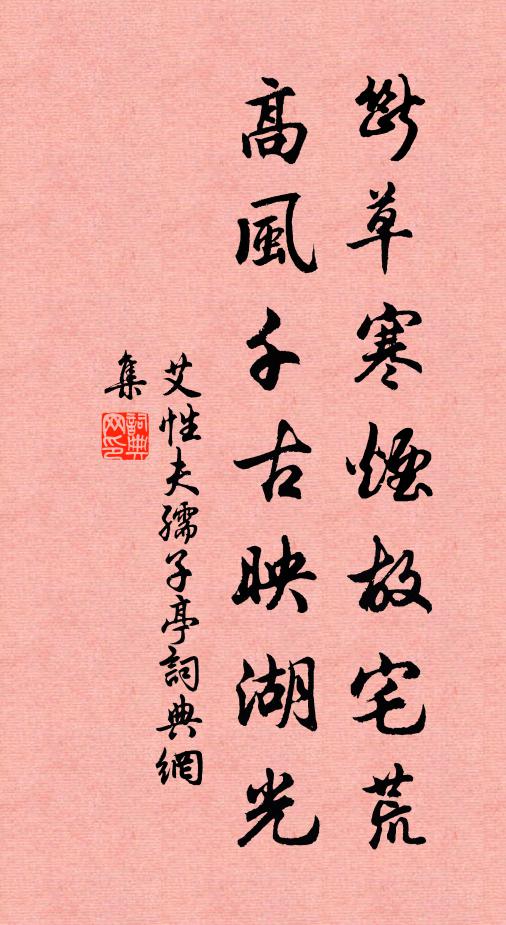 斷草寒煙故宅荒
髙風千古映湖光
艾性夫孺子亭詞典網
集
詞典网印